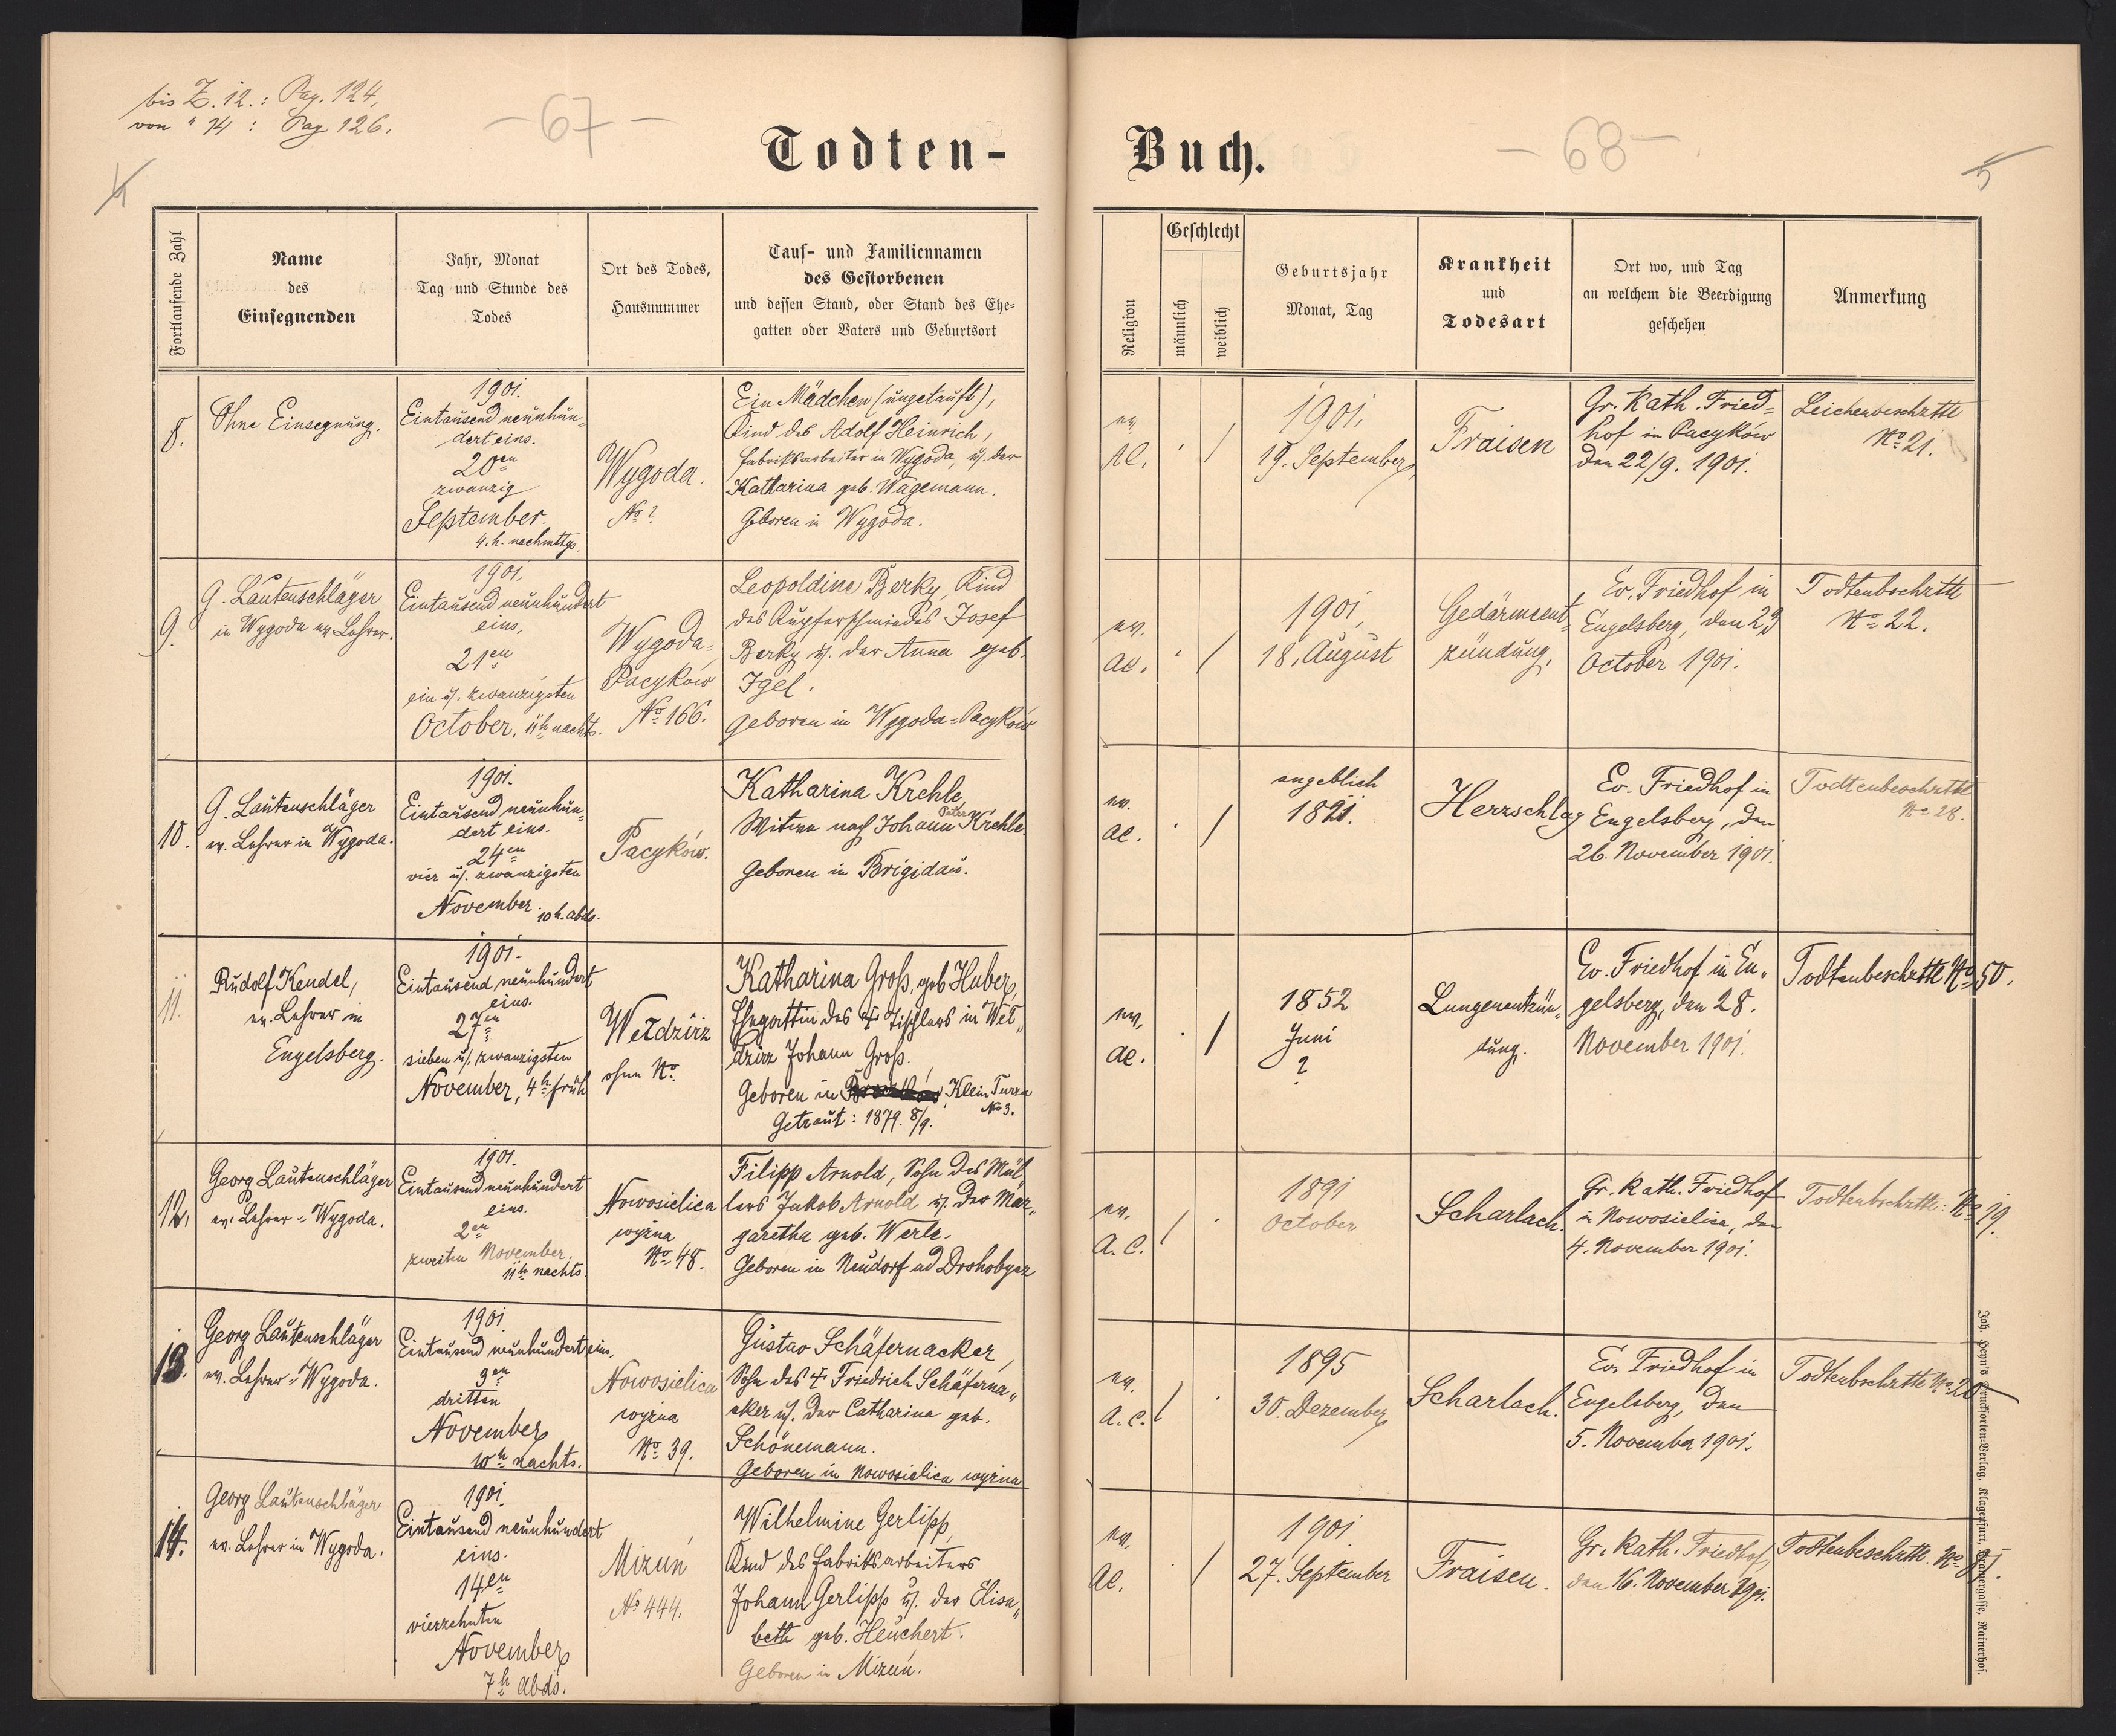 bis Z. 12.: Pag. 124,
von " 14 : Pag 126.
- 67 -
Todten-
4
Fortlaufende Zahl
Name
des
Einsegnenden
Jahr, Monat
Tag und Stunde des
Todes
Ort des Todes,
Hausnummer
Tauf- und Familiennamen
des Gestorbenen
und dessen Stand, oder Stand des Ehe-
gatten oder Vaters und Geburtsort
8.
Ohne Einsegnung.
1901.
Eintausend neunhun-
dert eins.
20en
zwanzig
September.
4.h. nachmttgs.
Wygoda.
No ?
Ein Mädchen (ungetauft),
Kind des Adolf Heinrich,
Fabriksarbeiter in Wygoda, u. der
Katharina geb. Wagemann.
Geboren in Wygoda.
9.
G. Lautenschläger
in Wygoda ev. Lehrer.
1901.
Eintausend neunhundert
eins,
21en
ein u. zwanzigsten
October, 11h nachts.
Wygoda=
Pacyków
No 166.
Leopoldine Berky, Kind
des Kupferschmiedes Josef
Berky u. der Anna geb.
Igel.
geboren in Wygoda=Pacyków
10.
G. Lautenschläger
ev. Lehrer in Wygoda.
1901.
Eintausend neunhun-
dert eins.
24en
vier u. zwanzigsten
November. 10 h. abds.
Pacyków.
Katharina Krehle,
Peter
Witwe nach Johann Krehle
Geboren in Brigidau.
11.
Rudolf Kendel,
ev. Lehrer in
Engelsberg.
1901.
Eintausend neunhundert
eins.
27en
sieben u. zwanzigsten
November, 4h früh
Wełdzirz
ohne No.
Katharina Groß, geb Huber,
Ehegattin des † Tischlers in Weł-
dzirz Johann Groß.
Geboren in Klein Turza
No 3.
Getraut: 1879. 8/9.
12.
Georg Lautenschläger
ev. Lehrer - Wygoda.
1901.
Eintausend neunhundert
eins.
2en
zweiten November.
11h nachts
Nowosielica
wyżna
No 48.
Filipp Arnold, Sohn des Mül-
lers Jakob Arnold u. der Mar-
garetha geb. Werle.
Geboren in Neudorf ad Drohobycz
13.
Georg Lautenschläger
ev. Lehrer - Wygoda.
1901
Eintausend neunhundert eins,
3en
dritten
November
10h nachts.
Nowosielica
wyżna
No 39.
Gustav Schäfernacker,
Sohn des † Friedrich Schäferna-
cker u. der Catharina geb.
Schönemann.
Geboren in Nowosielica wyżna
14.
Georg Lautenschläger
ev. Lehrer in Wygoda.
1901.
Eintausend neunhundert
eins.
14en
vierzehnten
November
7h Abds.
Mizuń
No 444.
Wilhelmine Gerlipp,
Kind des Fabriksarbeiters
Johann Gerlipp u. der Elisa-
beth geb. Heuchert.
Geboren in Mizuń.
Buch.
- 68 -
5
Religion
Geschlecht
männlich
weiblich
Geburtsjahr
Monat, Tag
Krankheit
und
Todesart
Ort wo, und Tag
an welchem die Beerdigung
geschehen
Anmerkung
ev.
AC.
· /
1901.
19. September
Fraisen
Gr. Kath. Fried=
hof in Pacyków
den 22/9. 1901.
Leichenbeschttl
No 21.
ev.
ac.
· /
1901,
18. August
Gedärment-
zündung.
Ev. Friedhof in
Engelsberg, den 23
October 1901.
Todtenbschrttl
No 22.
ev.
ac.
· /
angeblich
1821.
Herzschlag
Ev. Friedhof in
Engelsberg, den
26. November 1901.
Todtenbeschrttl
No 28.
ev.
ac.
· /
1852
Juni
?
Lungenentzün-
dung.
Ev. Friedhof in En-
gelsberg, den 28.
November 1901.
Todtenbeschttl No 50.
ev.
A. C.
/ ·
1891
October
Scharlach.
Gr. Kath. Friedhof
in Nowosielica, den
4. November 1901.
Todtenbschrttl: No 19.
ev.
A. C.
/ ·
1895
30. Dezember
Scharlach.
Ev. Friedhof in
Engelsberg, den
5. November 1901.
Todtenbschrttl No 20
ev.
AC.
· /
1901.
27. September
Fraisen.
Gr. Kath. Friedhof,
den 16. November 1901.
Todtenbeschttl. No
Joh. Heyn's Drucksorten-Verlag, Klagenfurt, Kramergasse, Rainerhof.